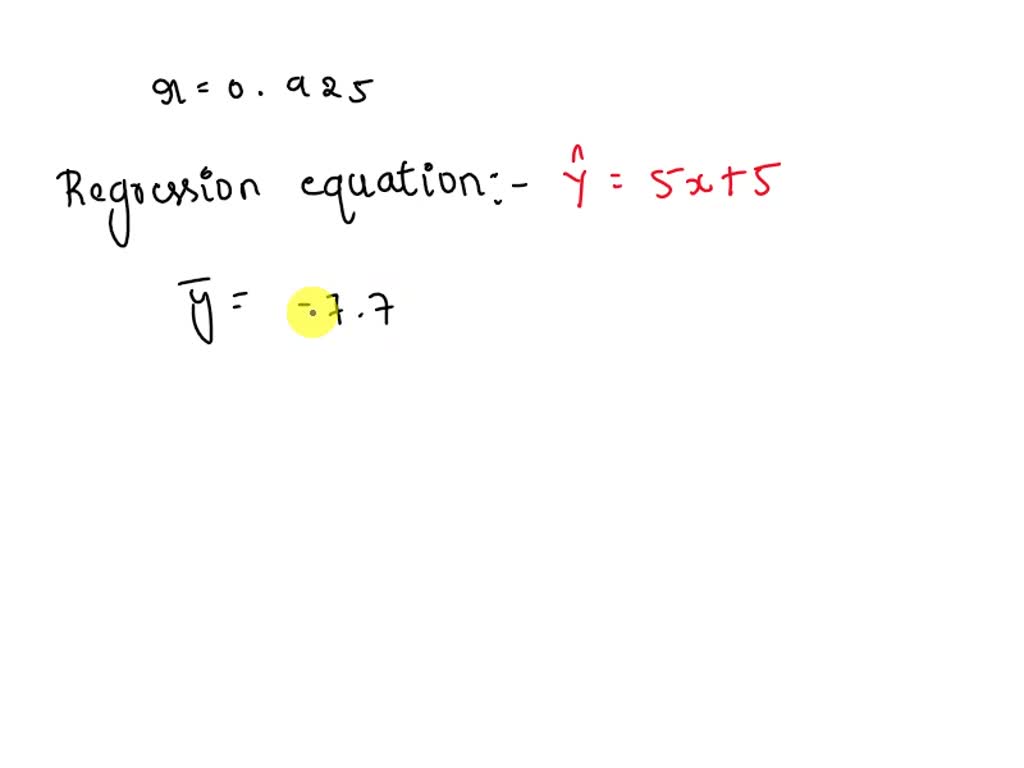 r = 0.925
Regression equation:- ŷ = 5x+5
y̅ = -7.7